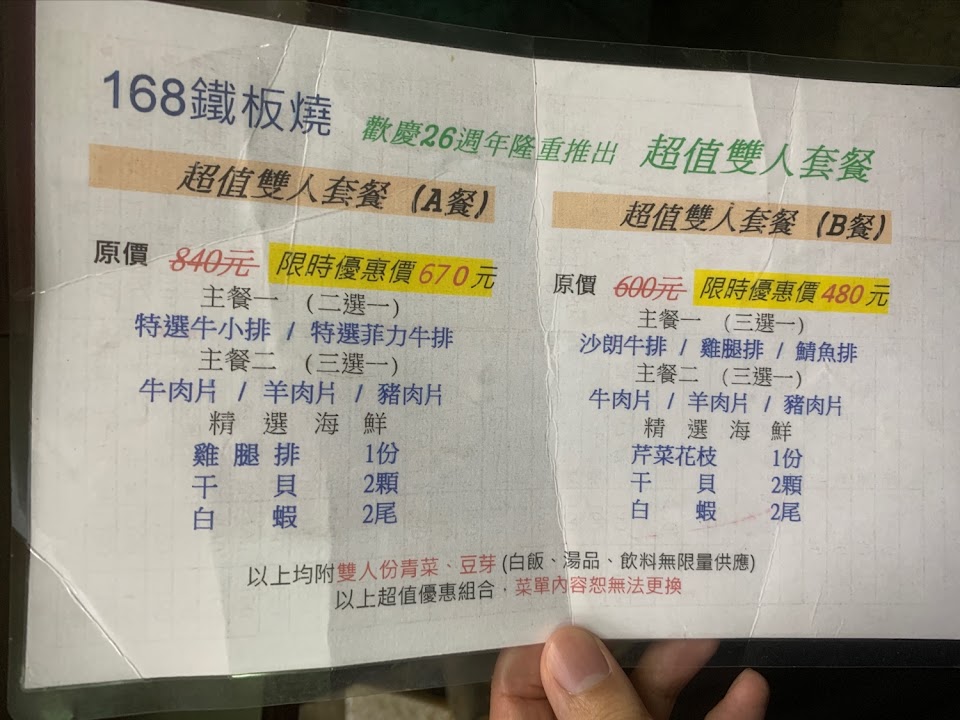 168鐵板燒
歡慶26週年隆重推出 超值雙人套餐
超值雙人套餐 (A餐)
原價 840元 限時優惠價670元
主餐一 (二選一)
特選牛小排 / 特選菲力牛排
主餐二 (三選一)
牛肉片 / 羊肉片 / 豬肉片
精選海鮮
雞腿排 1份
干貝 2顆
白蝦 2尾
超值雙人套餐 (B餐)
原價 600元 限時優惠價480元
主餐一 (三選一)
沙朗牛排 / 雞腿排 / 鯖魚排
主餐二 (三選一)
牛肉片 / 羊肉片 / 豬肉片
精選海鮮
芹菜花枝 1份
干貝 2顆
白蝦 2尾
以上均附雙人份青菜、豆芽 (白飯、湯品、飲料無限量供應)
以上超值優惠組合，菜單內容恕無法更換